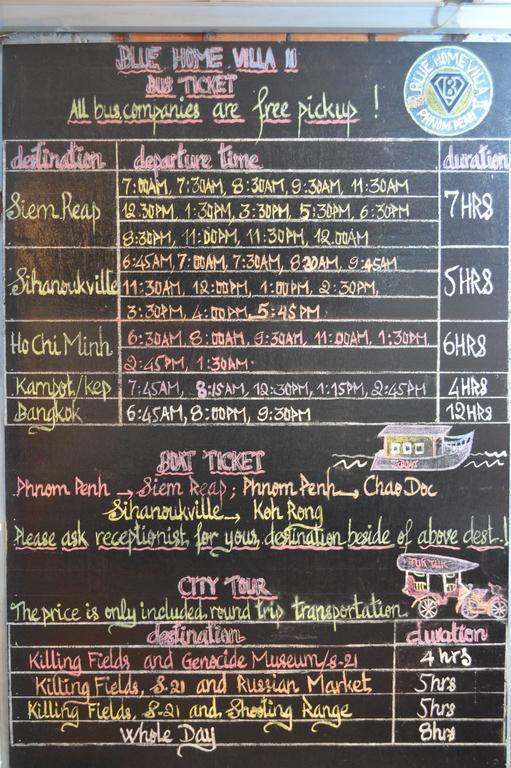 BLUE HOME VILLA II
BUS TICKET
All bus companies are free pickup !
BLUE HOME VILLA II
PHNOM PENH
destination departure time duration
Siem Reap 7:00AM, 7:30AM, 8:30AM, 9:30AM, 11:30AM 7HRS
12:30PM, 1:30PM, 3:30PM, 5:30PM, 6:30PM
8:30PM, 11:00PM, 11:30PM, 12.00AM
Sihanoukville 6:45AM, 7:00AM, 7:30AM, 8:30AM, 9:45AM 5HRS
11:30AM, 12:00PM, 1:00PM, 2:30PM,
3:30PM, 4:00PM, 5:45PM
Ho Chi Minh 6:30AM, 8:00AM, 9:30AM, 11:00AM, 1:30PM 6HRS
2:45PM, 1:30AM.
Kampot/kep 7:45AM, 8:15AM, 12:30PM, 1:15PM, 2:45PM 4HRS
Bangkok 6:45AM, 8:00PM, 9:30PM 12HRS
BOAT TICKET
BOAT
Phnom Penh → Siem Reap ; Phnom Penh → Chao Doc
Sihanoukville → Koh Rong
Please ask receptionist for your destination beside of above dest. !
CITY TOUR
TUK TUK
The price is only included round trip transportation.
destination duration
Killing Fields and Genocide Museum/S-21 4hrs
Killing Fields, S-21 and Russian Market 5hrs
Killing Fields, S-21 and Shooting Range 5hrs
Whole Day 8hrs